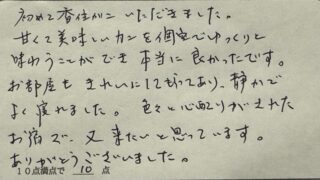 初めて香住ガニいただきました。
甘くて美味しいカニを個室でゆっくりと
味わうことができ本当に良かったです。
お部屋もきれいにしてあり、静かで
よく寝れました。色々と心配りがされた
お宿で、又来たいと思っています。
ありがとうございました。
10点満点で 10 点